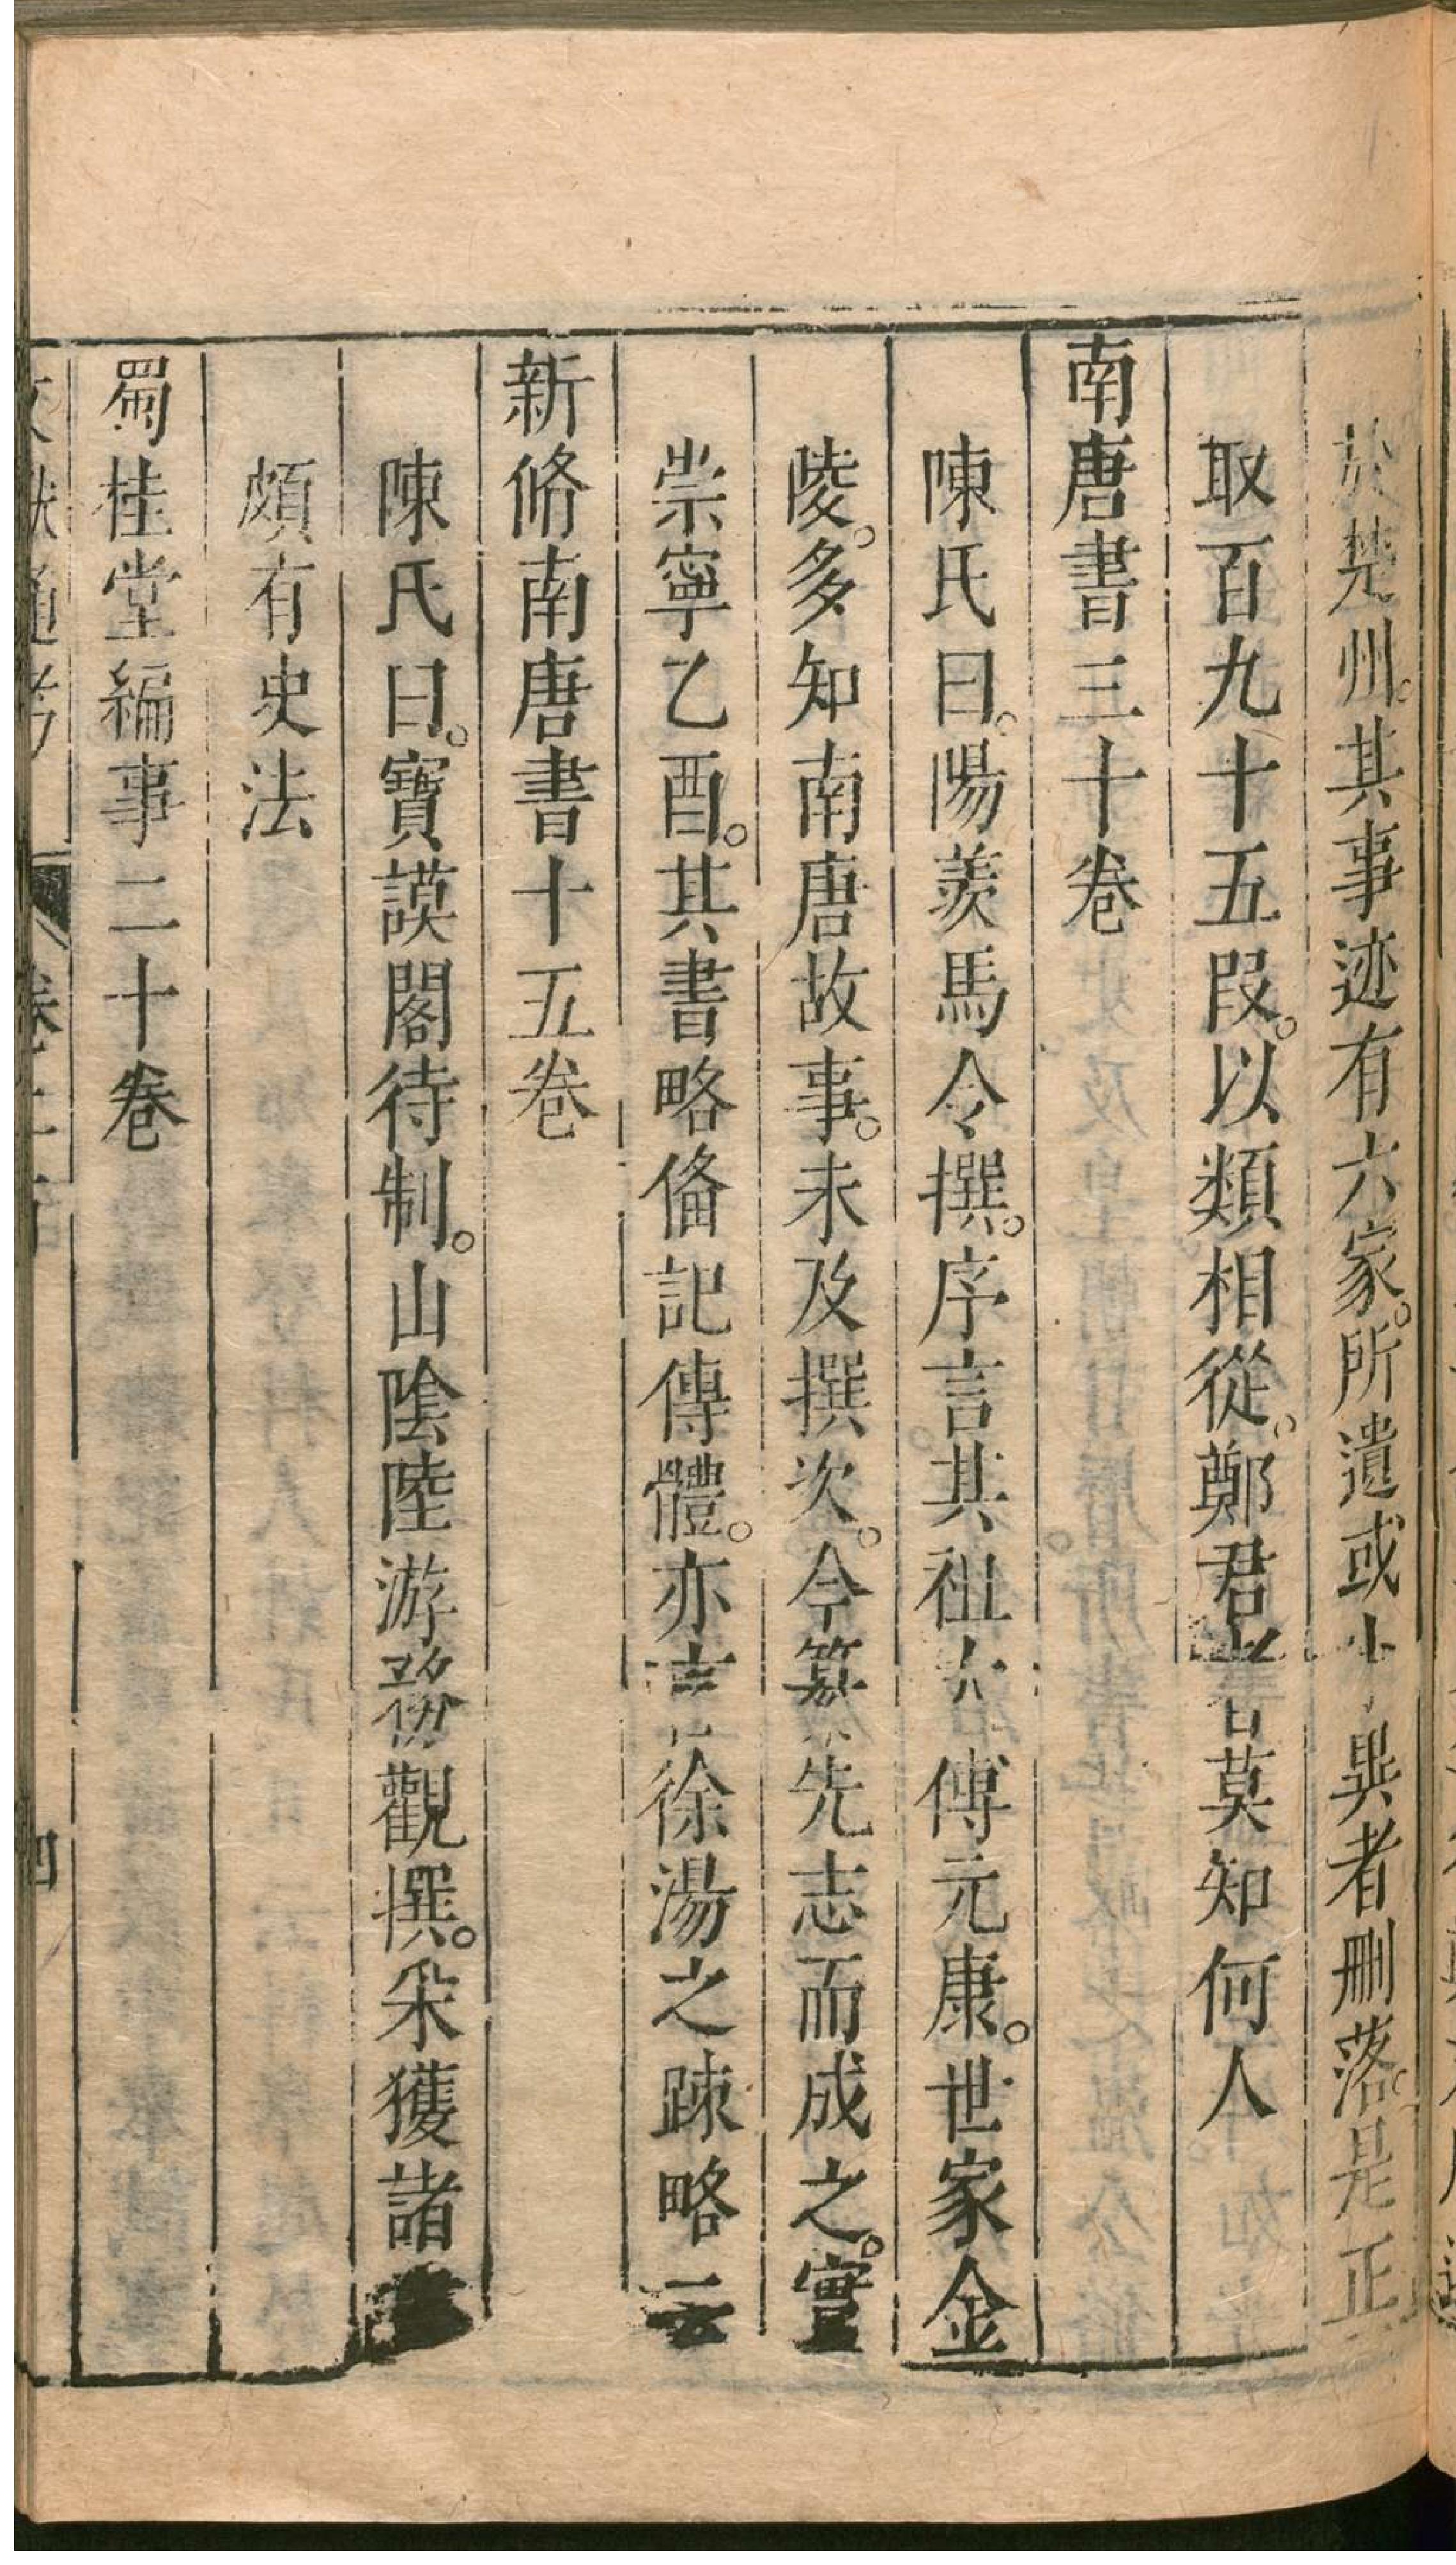 於楚州。其事迹有六家。所遺或小異者刪落。是正
取百九十五段。以類相從。鄭君者莫知何人
南唐書三十卷
陳氏曰。陽羨馬令撰。序言其祖太傅元康。世家金
陵。多知南唐故事。未及撰次。今纂先志而成之。實
崇寧乙酉。其書略俻記傳體。亦言徐湯之踈略云
新脩南唐書十五卷
陳氏曰。寶謨閣待制。山陰陸游務觀撰。采獲諸書
頗有史法
蜀桂堂編事二十卷
文獻通考 卷二百 四